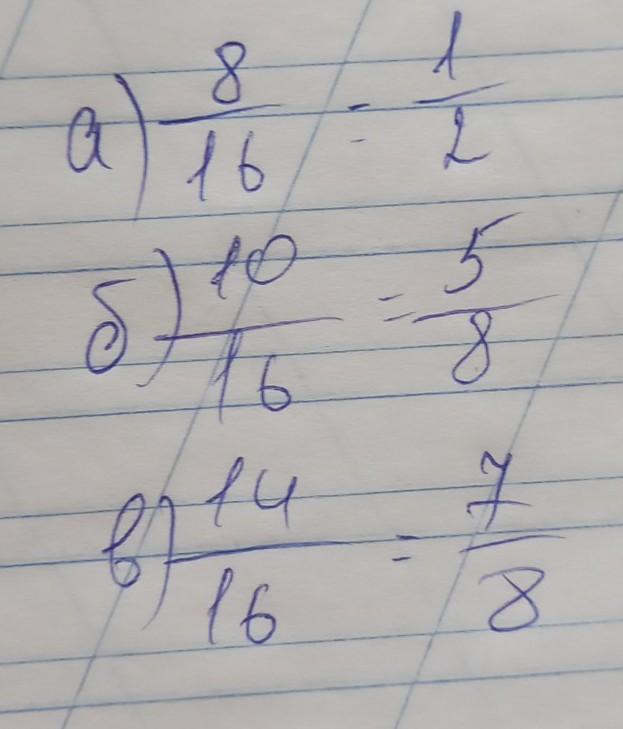 а) 8/16 = 1/2
б) 10/16 = 5/8
в) 14/16 = 7/8